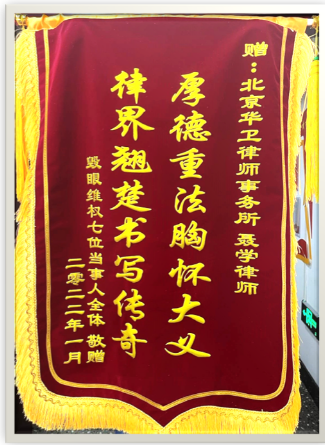 赠：北京华卫律师事务所 聂学律师
厚德重法胸怀大义
律界翘楚书写传奇
毁眼维权七位当事人全体 敬赠
二零二二年一月